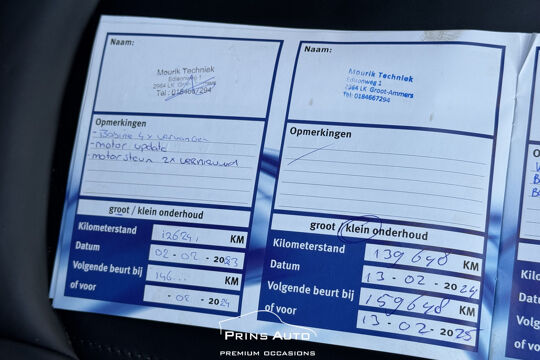 Naam:
Mourik Techniek
Edisonweg 1
2964 LK Groot-Ammers
Tel: 0184667294
Opmerkingen
- Bobine 4x vervangen
- motor update
- motorsteun 2x vernieuwd
groot / klein onderhoud
Kilometerstand KM
Datum 02-02-2023
Volgende beurt bij 146... KM
of voor 2024
Naam:
Mourik Techniek
Edisonweg 1
2964 LK Groot-Ammers
Tel: 0184667294
Opmerkingen
groot / klein onderhoud
Kilometerstand 139648 KM
Datum 13-02-2024
Volgende beurt bij 159648 KM
of voor 13-02-2025
PRINS AUTO
PREMIUM OCCASIONS